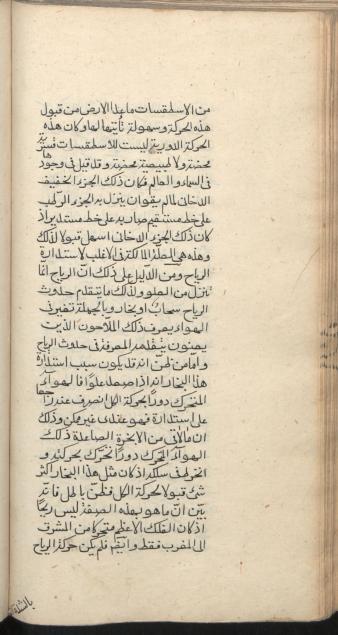 من الاسطقسات ماعدا الارض من قبول
هذه الحركة وسهولة تأتيها لها وكان هذه
الحركة الدورية ليست للاسطقسات قسرية
محضة ولا طبيعية محضة وقد قيل في وجودها
في السماء والعالم فكان ذلك الجزء الخفيف
الدخانى لما لم يقو ان ينزل به الجزء الرطب
على خط مستقيم صار به على خط مستدير اذ
كان ذلك الجزء الدخانى اسهل قبولا لذلك
وهذه هى العلة لمالكة فى الاغلب لاستدارة
الرياح ومن الدليل على ذلك ان الرياح انما
تنزل من العلو ولذلك ما يتقدم حدوث
الرياح سحاب او بخار وبالجملة تغير فى
الهواء يعرف ذلك الملاحون الذين
يعنون بتقدمة المعرفة فى حدوث الرياح
واما من ظن انه قد يكون سبب استدارة
هذا البخار انه اذا صعد علوا فالهواء
المتحرك دورا بحركة الكل انصرف عند راجعا
على استدارة فهو عندى غير ممكن وذلك
ان مالاقى من الابخرة الصاعدة ذلك
الهواء المتحرك دورا تحرك بحركته و
انخرط فى سلكه اذ كان مثل هذا البخار اكثر
شئ قبولا لحركة الكل فظن باطل فانه
بين ان ما هو بهذه الصفة ليس ريحا
اذ كان الفلك الاعظم متحركا من المشرق
الى المغرب فقط وايضا فلم يكن حركة الرياح